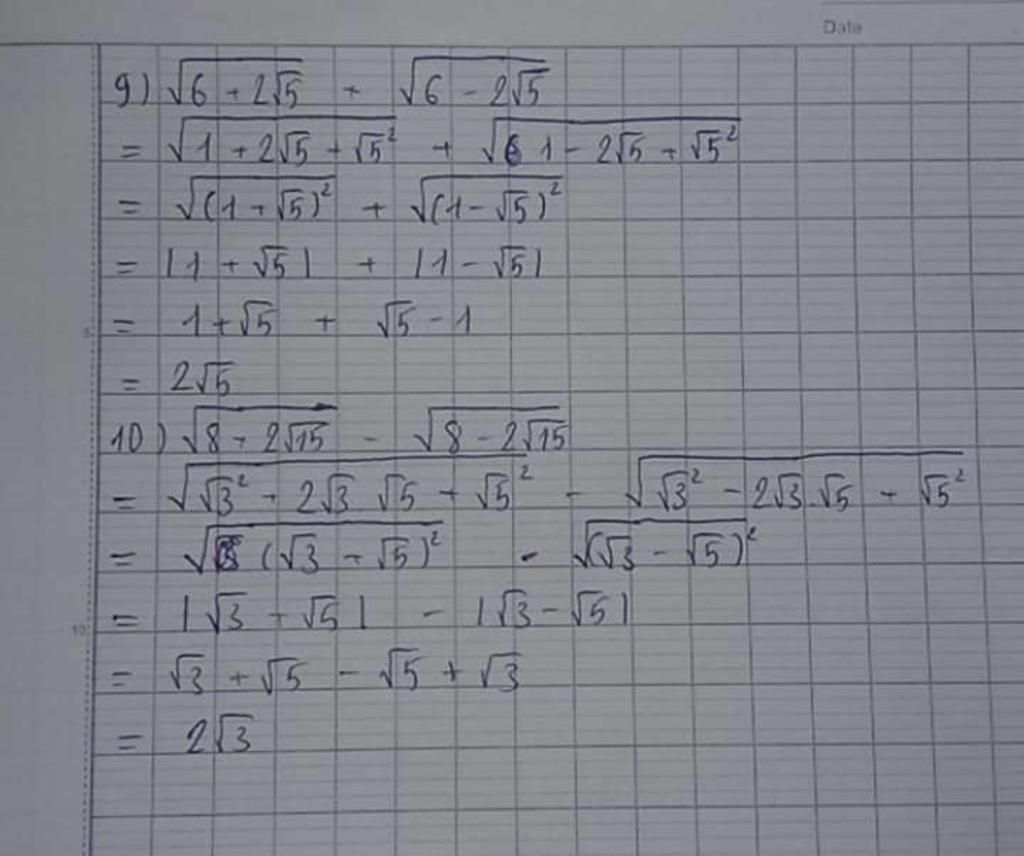 Date
9) √(6 + 2√5) + √(6 - 2√5)
= √(1 + 2√5 + √5²) + √(1 - 2√5 + √5²)
= √((1 + √5)²) + √((1 - √5)²)
= |1 + √5| + |1 - √5|
= 1 + √5 + √5 - 1
5
= 2√5
10) √(8 + 2√15) - √(8 - 2√15)
= √(√3² + 2√3 √5 + √5²) - √(√3² - 2√3.√5 + √5²)
= √((√3 + √5)²) - √((√3 - √5)²)
10
= |√3 + √5| - |√3 - √5|
= √3 + √5 - √5 + √3
= 2√3